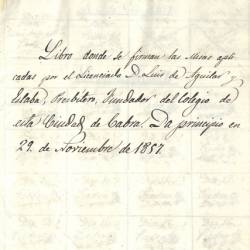 Libro donde se firman las Misas apli
cadas por el Licenciado D. Luis de Aguilar y
Eslaba, Presbitero, Fundador del Colegio de
esta Ciudad de Cabra. Da principio en
29. de Noviembre de 1857.